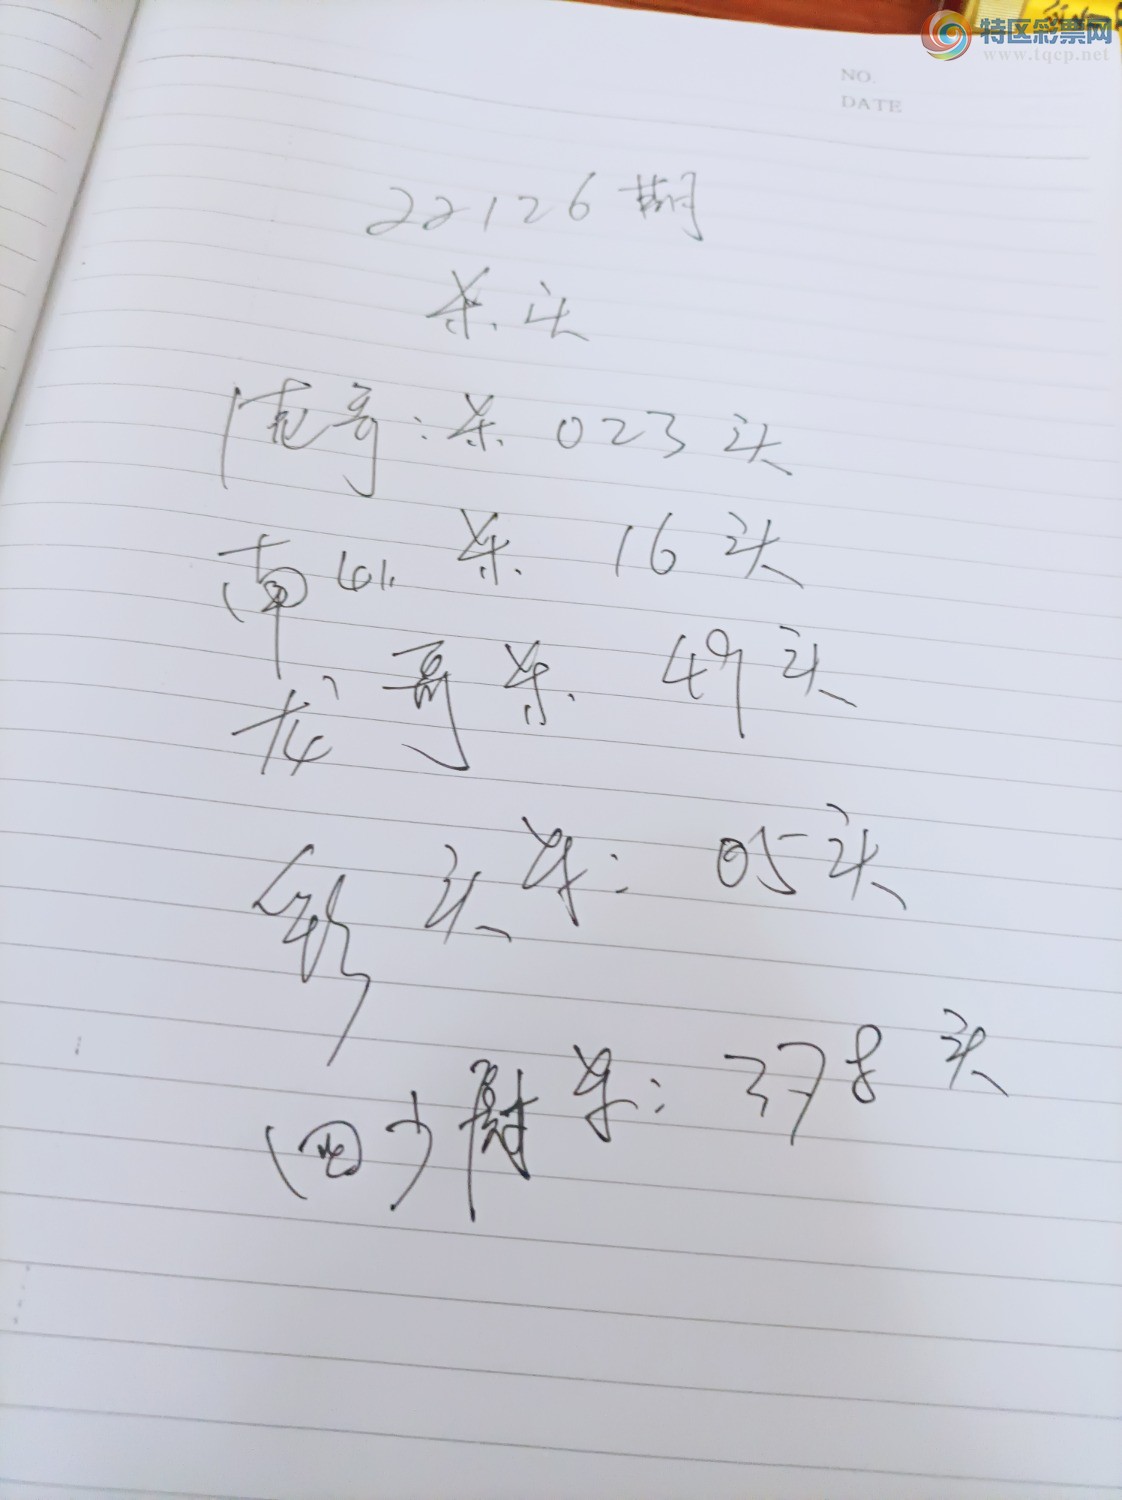 特区彩票网
www.tqcp.net
NO.
DATE
22126期
杀头
哥:杀023头
南山杀 16头
龙哥杀 49头
头杀: 05头
少尉杀: 378头